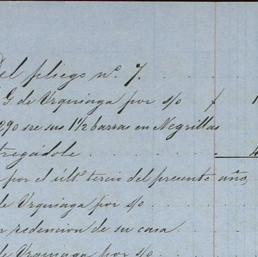 Del pliego nº. 7.
G. de Urquinaga por s/o f 1
290 sre sus 1½ barras en Negrillas
tregádole
por el últº tercio del presente año,
de Urquinaga por s/o
redencion de su casa
de Urquinaga por s/o